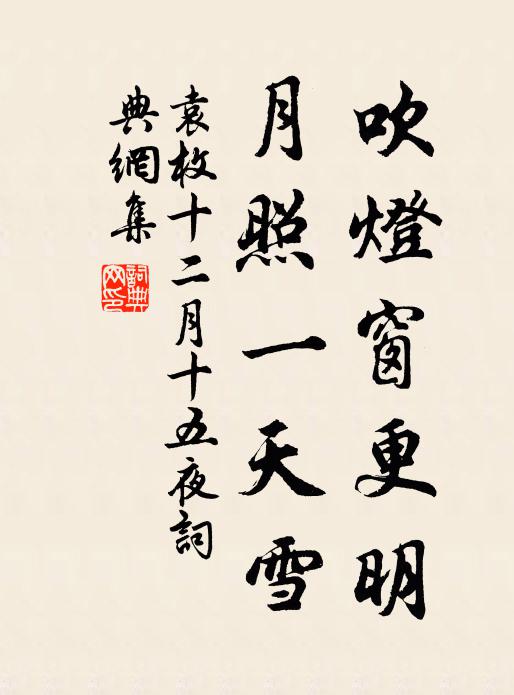 吹燈窗更明
月照一天雪
袁枚十二月十五夜詞
典網集
詞典網印